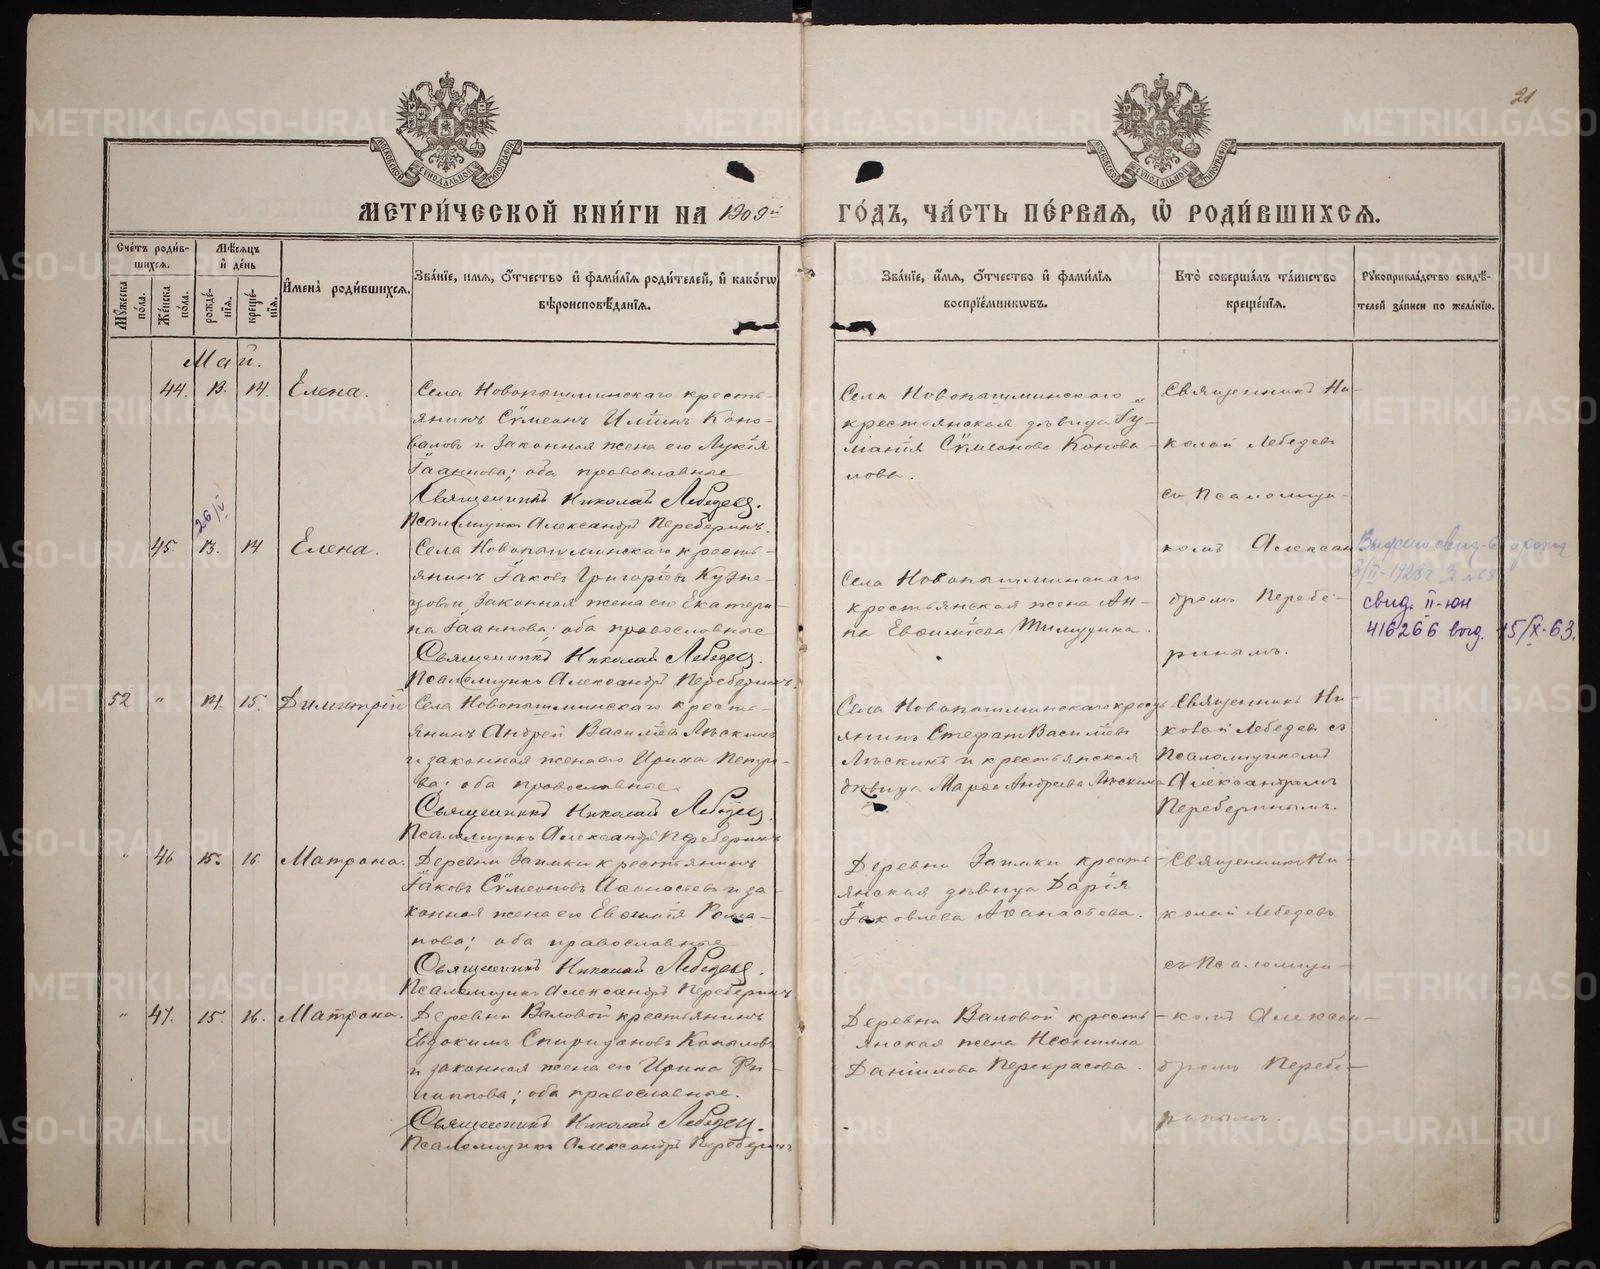 21
МОСКОВСКОЙ СѴНОДАЛЬНОЙ ТИПОГРАФІИ
МОСКОВСКОЙ СѴНОДАЛЬНОЙ ТИПОГРАФІИ
МЕТРИ́ЧЕСКОЙ КНИ́ГИ НА 1909й ГО́ДЪ, ЧА́СТЬ ПЕ́РВАѦ, Ѡ РОДИ́ВШИХСѦ.
Сче́тъ роди́в-
шихсѧ.
Мꙋ́жеска по́ла.
Же́нска по́ла.
Мѣ́сѧцъ
и де́нь
рожде́-
нїѧ.
креще́-
нїѧ.
И҆мена̀ роди́вшихсѧ.
Зва́нїе, и҆мѧ, ѻ҆́тчество и҆ фами́лїѧ роди́телей, и҆ како́гѡ
вѣроисповѣ́данїѧ.
Зва́нїе, и҆́мѧ, ѻ҆́тчество и҆ фами́лїѧ
воспрїе́мникѡвъ.
Кто̀ соверша́лъ та́инство
креще́нїѧ.
Рꙋкоприкла́дство свидѣ́-
телей за́писи по жела́нїю.
Май.
44. 13. 14. Елена.
Села Новопышминскаго кресть-
янинъ Сѵмеонъ Илiинъ Коно-
валовъ и законная жена его Лукія
Іоаннова; оба православные
Священникъ Николай Лебедевъ.
Псаломщикъ Александръ Переберинъ.
Села Новопышминскаго
крестьянская дѣвица Іу-
ліанія Сѵмеонова Конова-
лова.
Священникъ Ни-
колай Лебедевъ
съ Псаломщи-
26/V
45. 13. 14 Елена.
Села Новопышминскаго кресть-
янинъ Іаковъ Григоріевъ Кузне-
цовъ и законная жена его Екатери-
на Іоаннова; оба православные
Священникъ Николай Лебедевъ.
Псаломщикъ Александръ Переберинъ.
Села Новопышминскаго
крестьянская жена Ан-
на Евѳиміева
комъ Алексан
дромъ Перебе-
ринымъ.
1928г
свид. II-юн
416266 выд. 15/X-63.
52 " 14. 15. Димитрій
Села Новопышминскаго кресть-
янинъ Андрей Василіевъ Лѣскинъ
и законная жена его Ирина Петро-
ва; оба православные.
Священникъ Николай Лебедевъ.
Псаломщикъ Александръ Переберинъ
Села Новопышминскаго кресть-
янинъ Стефанъ Василіевъ
Лѣскинъ и крестьянская
дѣвица Марѳа Андреева Лѣскина
Священникъ Ни-
колай Лебедевъ съ
Псаломщикомъ
Александромъ
Переберинымъ.
" 46 15. 16. Матрона.
Деревни Заимки крестьянинъ
Іаковъ Сѵмеоновъ Аѳанасьевъ и за-
конная жена его Евѳимія Рома-
нова; оба православные
Священникъ Николай Лебедевъ.
Псаломщикъ Александръ Переберинъ
Деревни Заимки кресть-
янская дѣвица Дарія
Іаковлева Аѳанасьева.
Священникъ Ни-
колай Лебедевъ
съ Псаломщи-
" 47. 15. 16. Матрона.
Деревни Валовой крестьянинъ
Евдокимъ Спиридоновъ Копыловъ
и законная жена его Ирина Фи-
липпова; оба православные.
Священникъ Николай Лебедевъ.
Псаломщикъ Александръ Переберинъ
Деревни Валовой кресть-
янская жена Неонилла
Даніилова Перекрасова.
комъ Алексан-
дромъ Перебе-
ринымъ.
METRIKI.GASO-URAL.RU